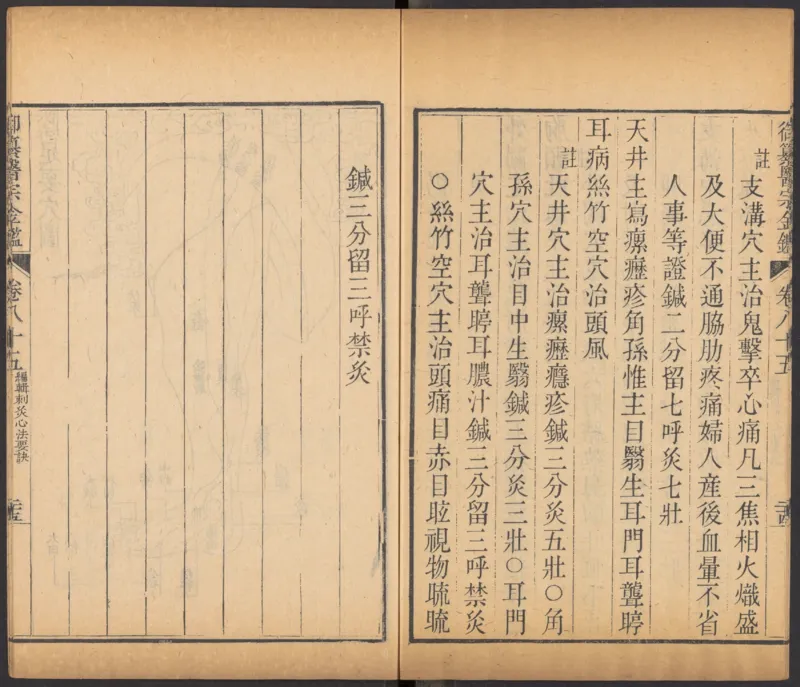 御纂醫宗金鑑
卷八十五
註
支溝穴主治鬼擊卒心痛凡三焦相火熾盛
及大便不通脇肋疼痛婦人産後血暈不省
人事等證鍼二分留七呼灸七壯
天井主寫瘰癧疹角孫惟主目翳生耳門耳聾聤
耳病絲竹空穴治頭風
註
天井穴主治瘰癧癮疹鍼三分灸五壯○角
孫穴主治目中生翳鍼三分灸三壯○耳門
穴主治耳聾聤耳膿汁鍼三分留三呼禁灸
○絲竹空穴主治頭痛目赤目眩視物䀮䀮
鍼三分留三呼禁灸
御纂醫宗金鑑
卷八十五
編輯刺灸心法要訣